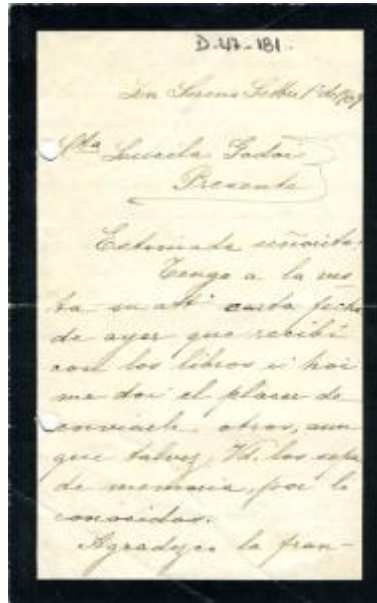 D-47-181.
La Serena Setbre 1º de 1909
Sta Lucila Godoi
Presente
Estimada señorita:
Tengo a la vis
ta su att carta fecha
de ayer que recibí
con los libros i hoi
me doi el placer de
enviarle otros, aun
que talvez Vd. los sepa
de memoria, por lo
conocidos.
Agradezco la fran-